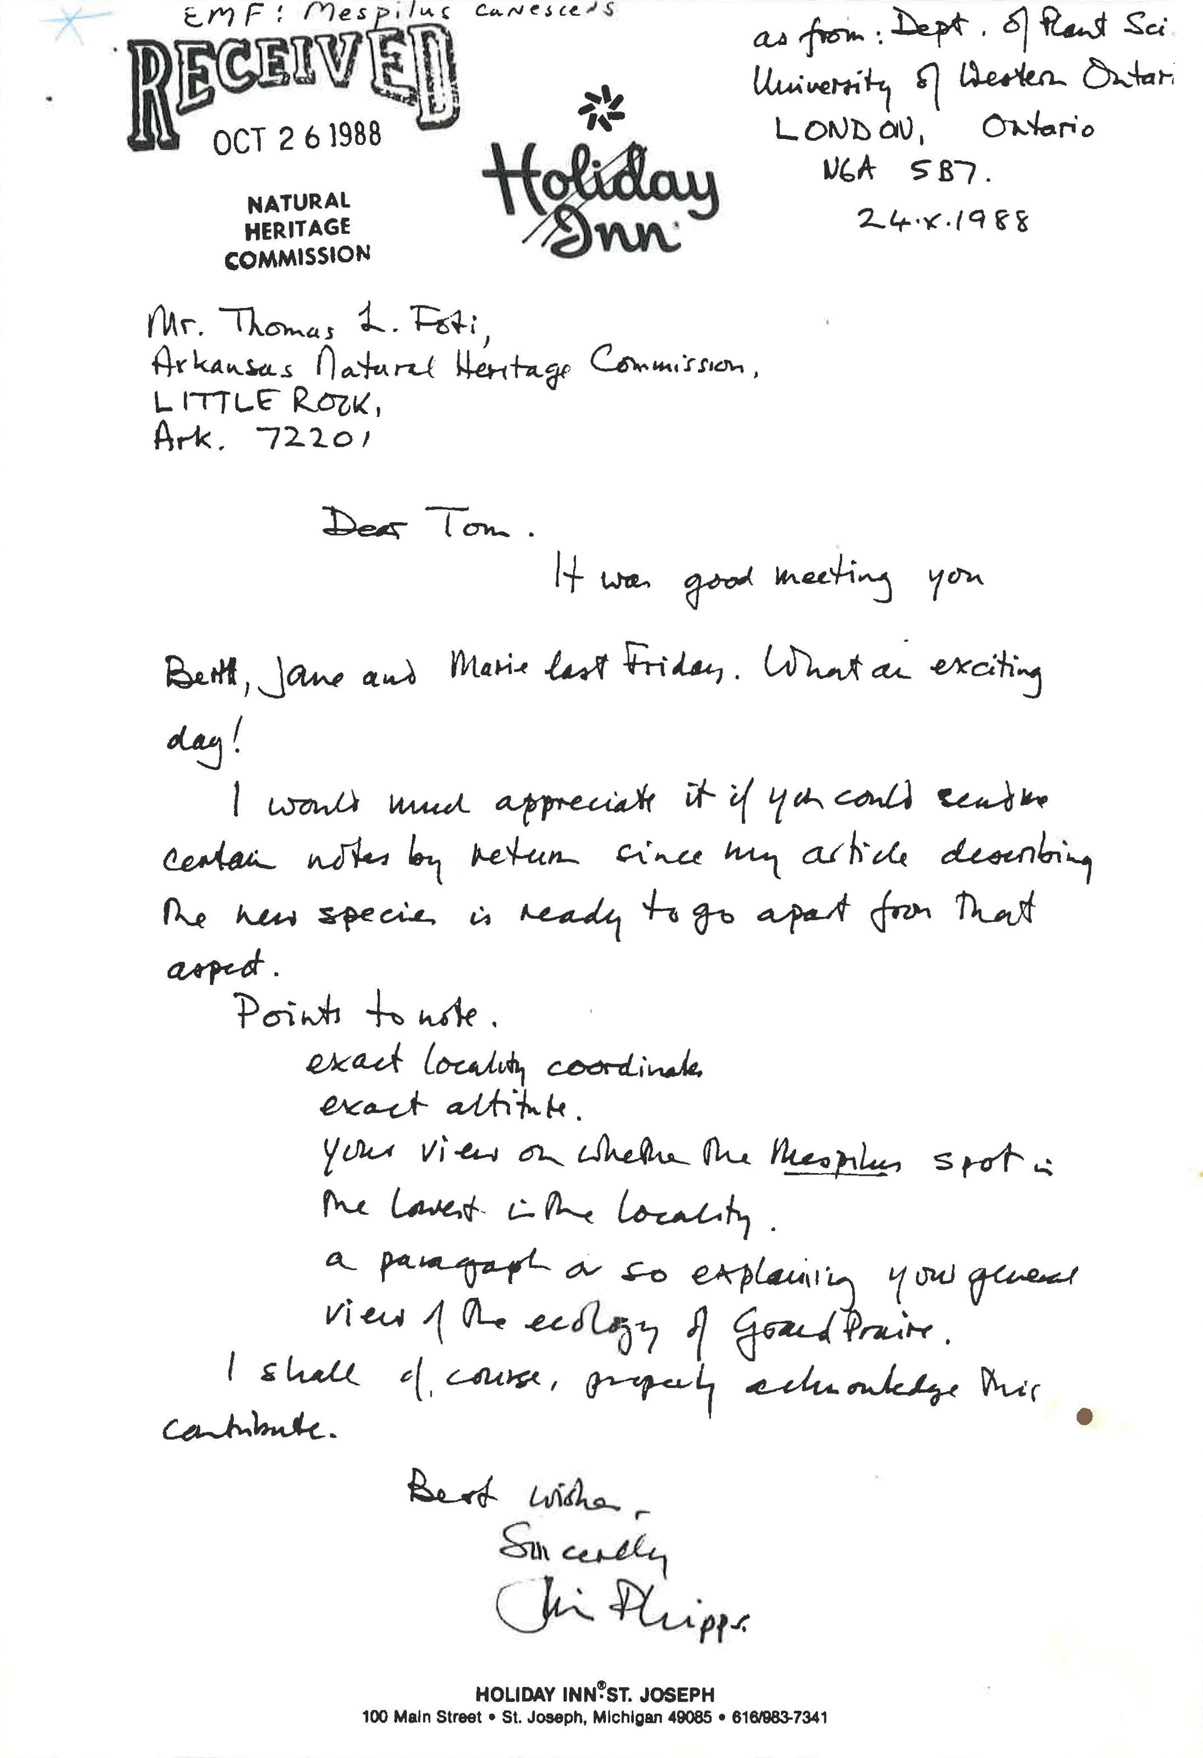 EMF: Mespilus canescens
RECEIVED
OCT 26 1988
NATURAL
HERITAGE
COMMISSION
Holiday
Inn
as from: Dept. of Plant Sci
University of Western Ontari
LONDON, Ontario
N6A 5B7.
24.x.1988
Mr. Thomas L. Foti,
Arkansas Natural Heritage Commission,
LITTLE ROCK,
Ark. 72201
Dear Tom.
It was good meeting you
Jane and Marie last Friday. What an exciting
day!
I would much appreciate it if you could send me
certain notes by return since my article describing
the new species is ready to go apart from that
aspect.
Points to note.
exact locality coordinates
exact altitute.
your view on whether the Mespilus spot is
the lowest in the locality.
a paragraph or so explaining your general
view of the ecology of Grand Prairie.
I shall of, course, properly acknowledge this
contribute.
Best wishes,
Sincerely
Jim Phipps.
HOLIDAY INN® ST. JOSEPH
100 Main Street • St. Joseph, Michigan 49085 • 616/983-7341